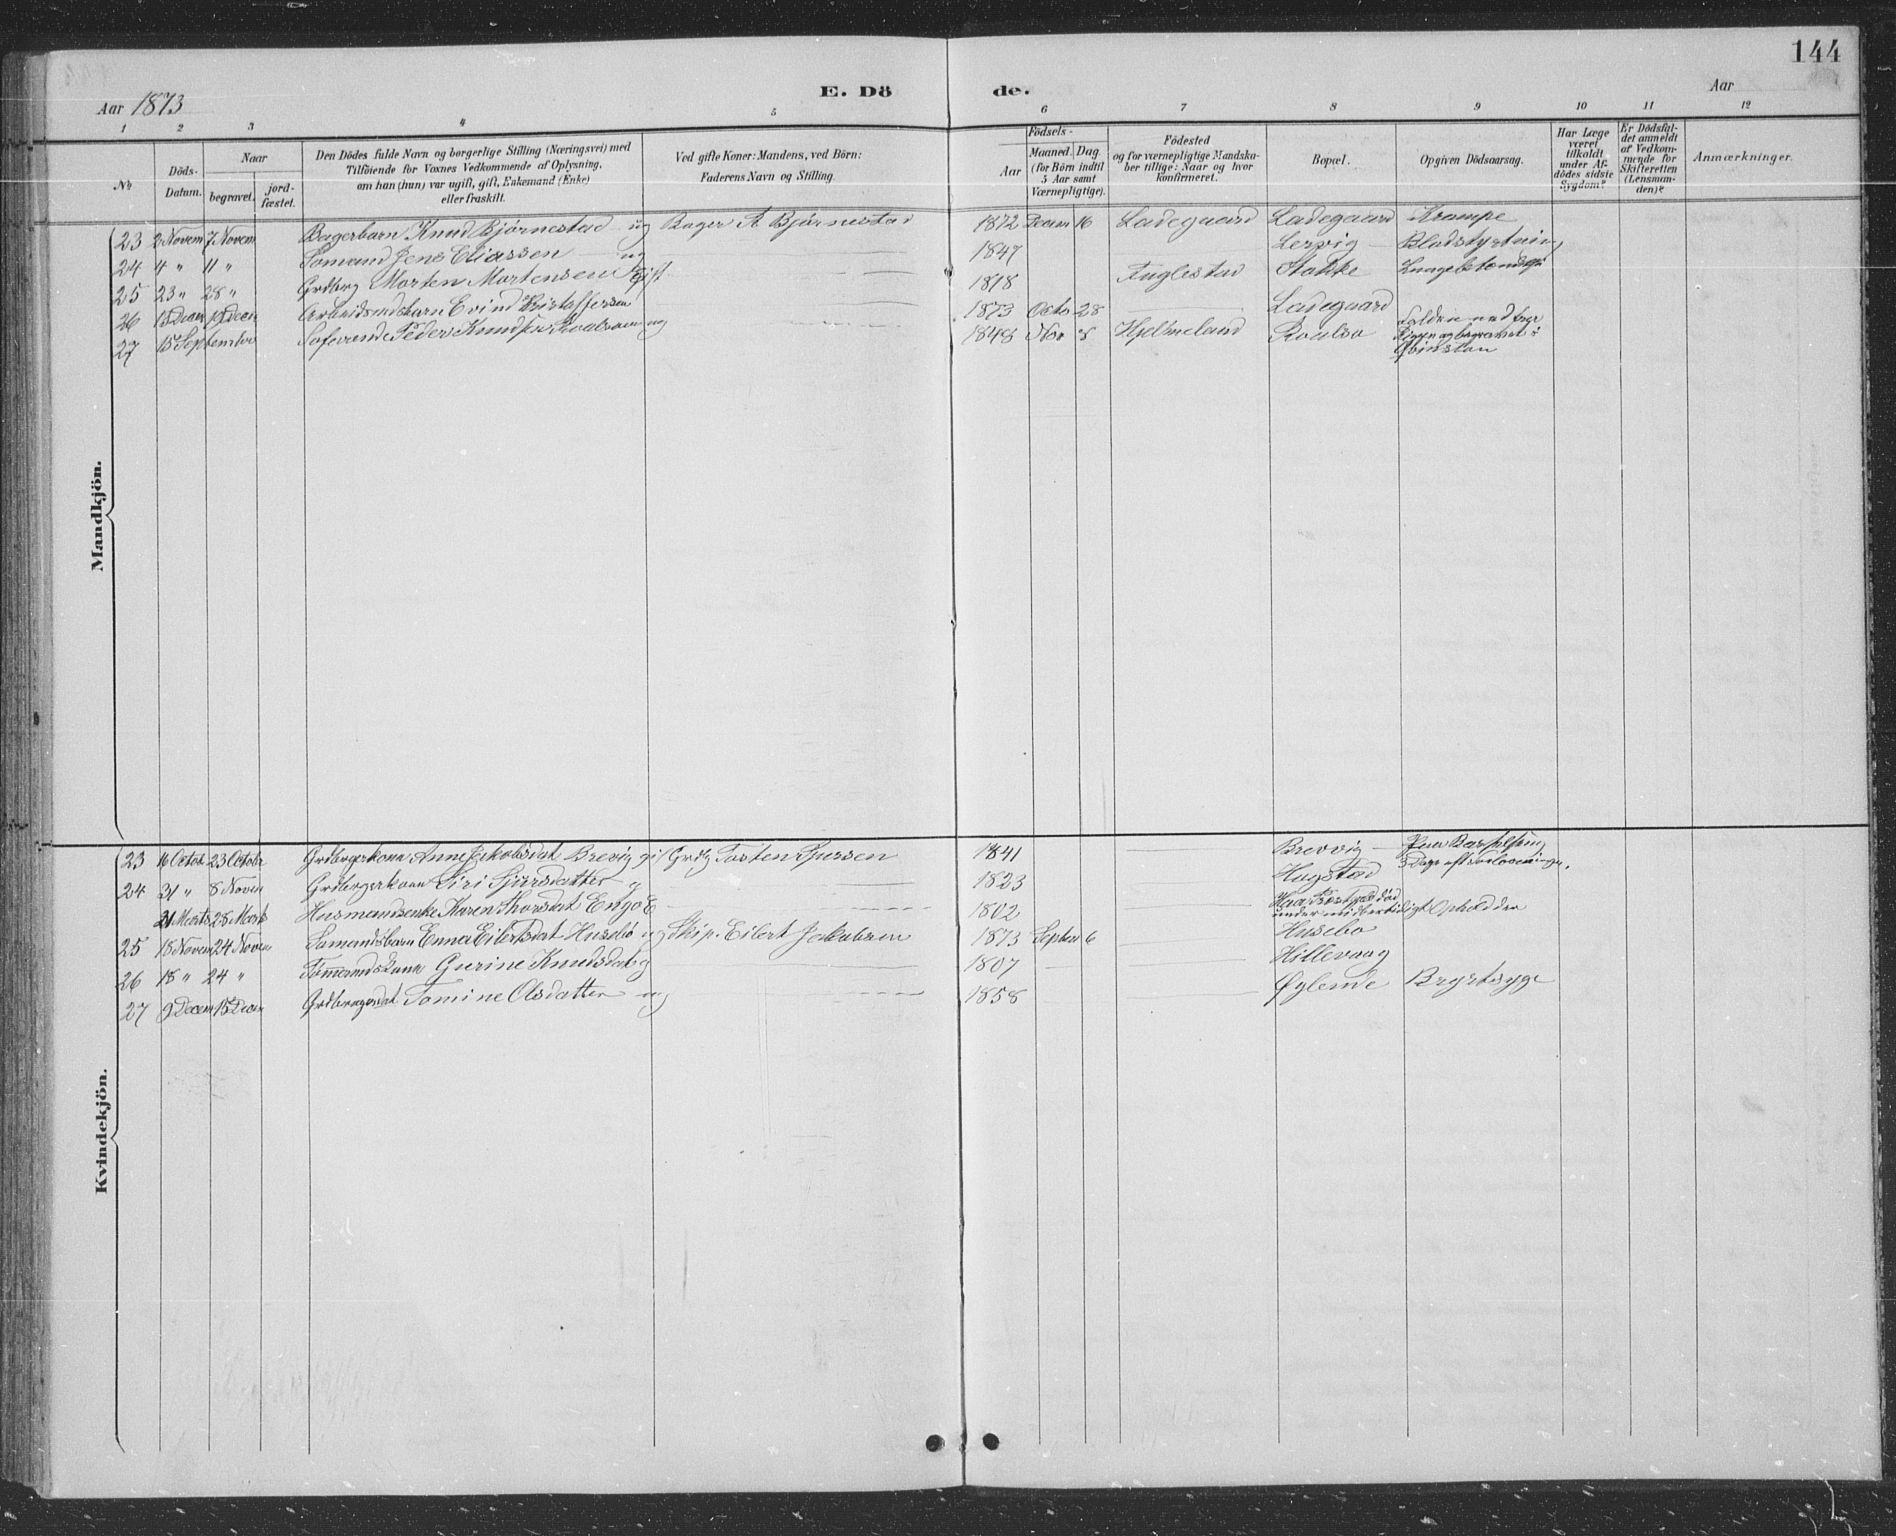 144
E. Dö de.
Aar 1873
Aar
1 2 3 4 5 6 7 8 9 10 11 12
No
Döds-
Datum.
Naar
begravet.
jord-
fæstet.
Den Dödes fulde Navn og borgerlige Stilling (Næringsvei) med
Tilföiende for Voxnes Vedkommende af Oplysning,
om han (hun) var ugift, gift, Enkemand (Enke)
eller fraskilt.
Ved gifte Koner: Mandens, ved Börn:
Faderens Navn og Stilling.
Födsels-
Aar
Maaned. Dag.
(for Börn indtil
5 Aar samt
Værnepligtige).
Födested
og for værnepligtige Mandska-
ber tillige: Naar og hvor
konfirmeret.
Bopæl.
Opgiven Dödsaarsag.
Har Læge
været
tilkaldt
under Af-
dödes sidste
Sygdom?
Er Dödsfal-
det anmeldt
af Vedkom-
mende for
Skifteretten
(Lensman-
den)?
Anmærkninger.
Mandkjön.
23 2 Novem 7 Novem Bagerbarn Knud Bjørnestad ug Bager A Bjørnestad 1872 Decem 16 Ladegaard Ladegaard Krampe
24 4 " 11 " Sømand Jens Eliassen ug 1847 Lervig Blodstyrtning
25 23 " 28 " Grdbrg Morten Mortensen Gift 1818 Fuglestad Stokke
26 13 Decem Decem Arbeidsmdsbarn Evind Kristoffersen 1873 Octo 28 Ladegaard
27 15 September Sofarende Peder Knudsen Roalsøen ug 1848 Nov 5 Hjelmeland Roalsø Falden ned fra
Riggen og begravet i
Kvindekjön.
23 16 Octob 23 Octobr Grdbrgerkone Anne Jakobsdat Brevig gi Grdbg Tosten Sjursen 1841 Brevvig
24 31 " 8 Novem Grdbrgerkone Siri Sjursdatter g 1823 Hagstad
21 Marts 28 Marts Husmandsenke Karen Thorsdat Engø E 1802
under midlertidigt Ophold der
25 18 Novem 24 Novem Sømandsbarn Enna Eilertsdat Husebø ug Skip. Eilert Jakobsen 1873 Septem 6 Husebø
26 18 " 24 " Tømmermdskone Gurine Knudsdat g 1807 Hillevaag
27 9 Decem 15 Decem Grdbrugerdat Tomine Olsdatter ug 1858 Øglende Brystsyge